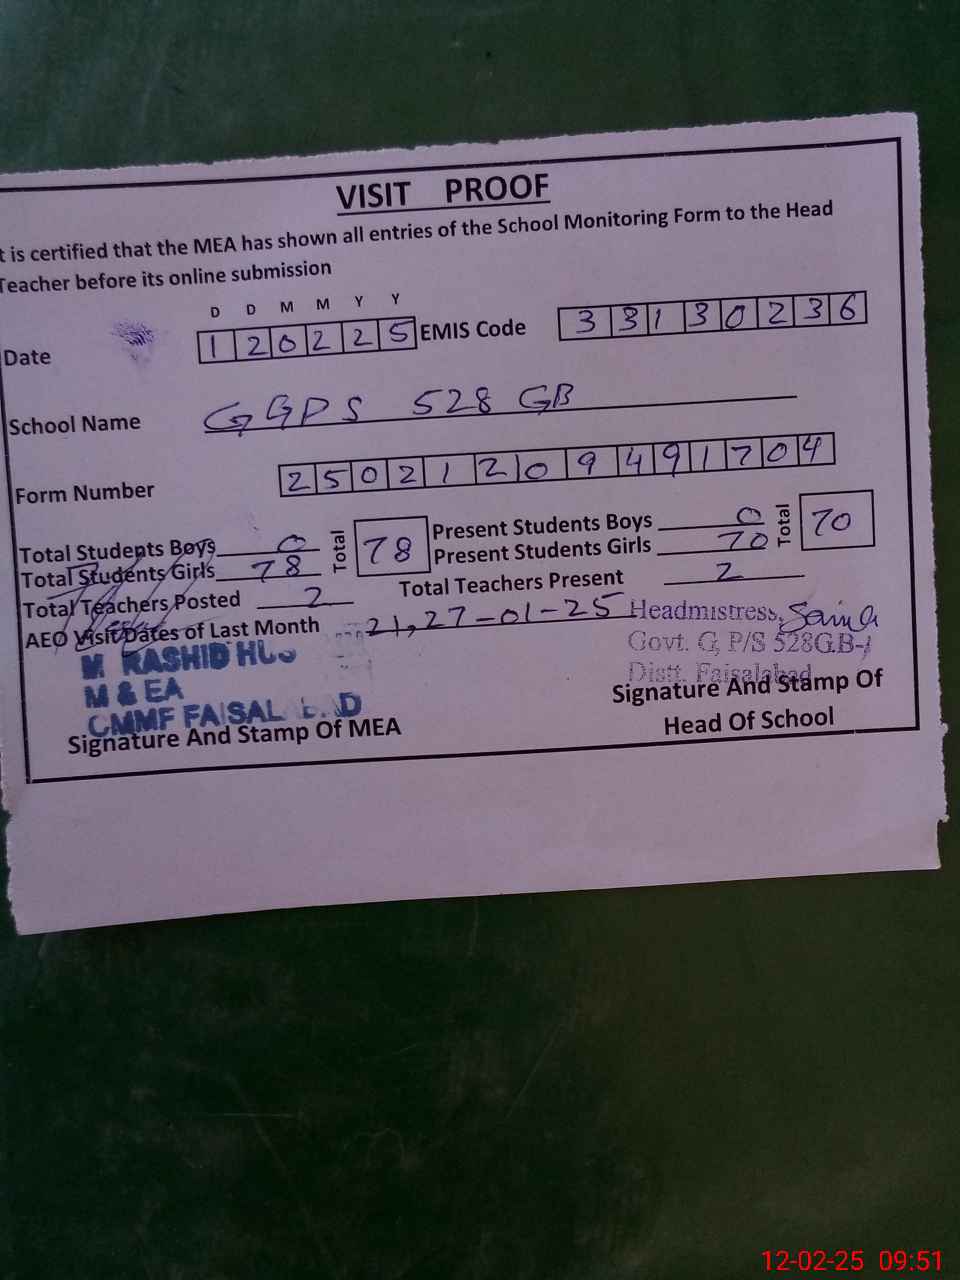 VISIT PROOF
t is certified that the MEA has shown all entries of the School Monitoring Form to the Head
Teacher before its online submission
D D M M Y Y
Date 1 2 0 2 2 5 EMIS Code 3 3 1 3 0 2 3 6
School Name GGPS 528 GB
Form Number 2 5 0 2 1 2 0 9 4 9 1 7 0 4
Total Students Boys 0 Total 78 Present Students Boys 0 Total 70
Total Students Girls 78 Present Students Girls 70
Total Teachers Posted 2 Total Teachers Present 2
AEO Visit Dates of Last Month 21, 27-01-25
Headmistress, Saima
Govt. G, P/S 528G.B-
Distt. Faisalabad
M. RASHID HUS
M & EA
CMMF FAISALABAD
Signature And Stamp Of MEA
Signature And Stamp Of
Head Of School
12-02-25 09:51